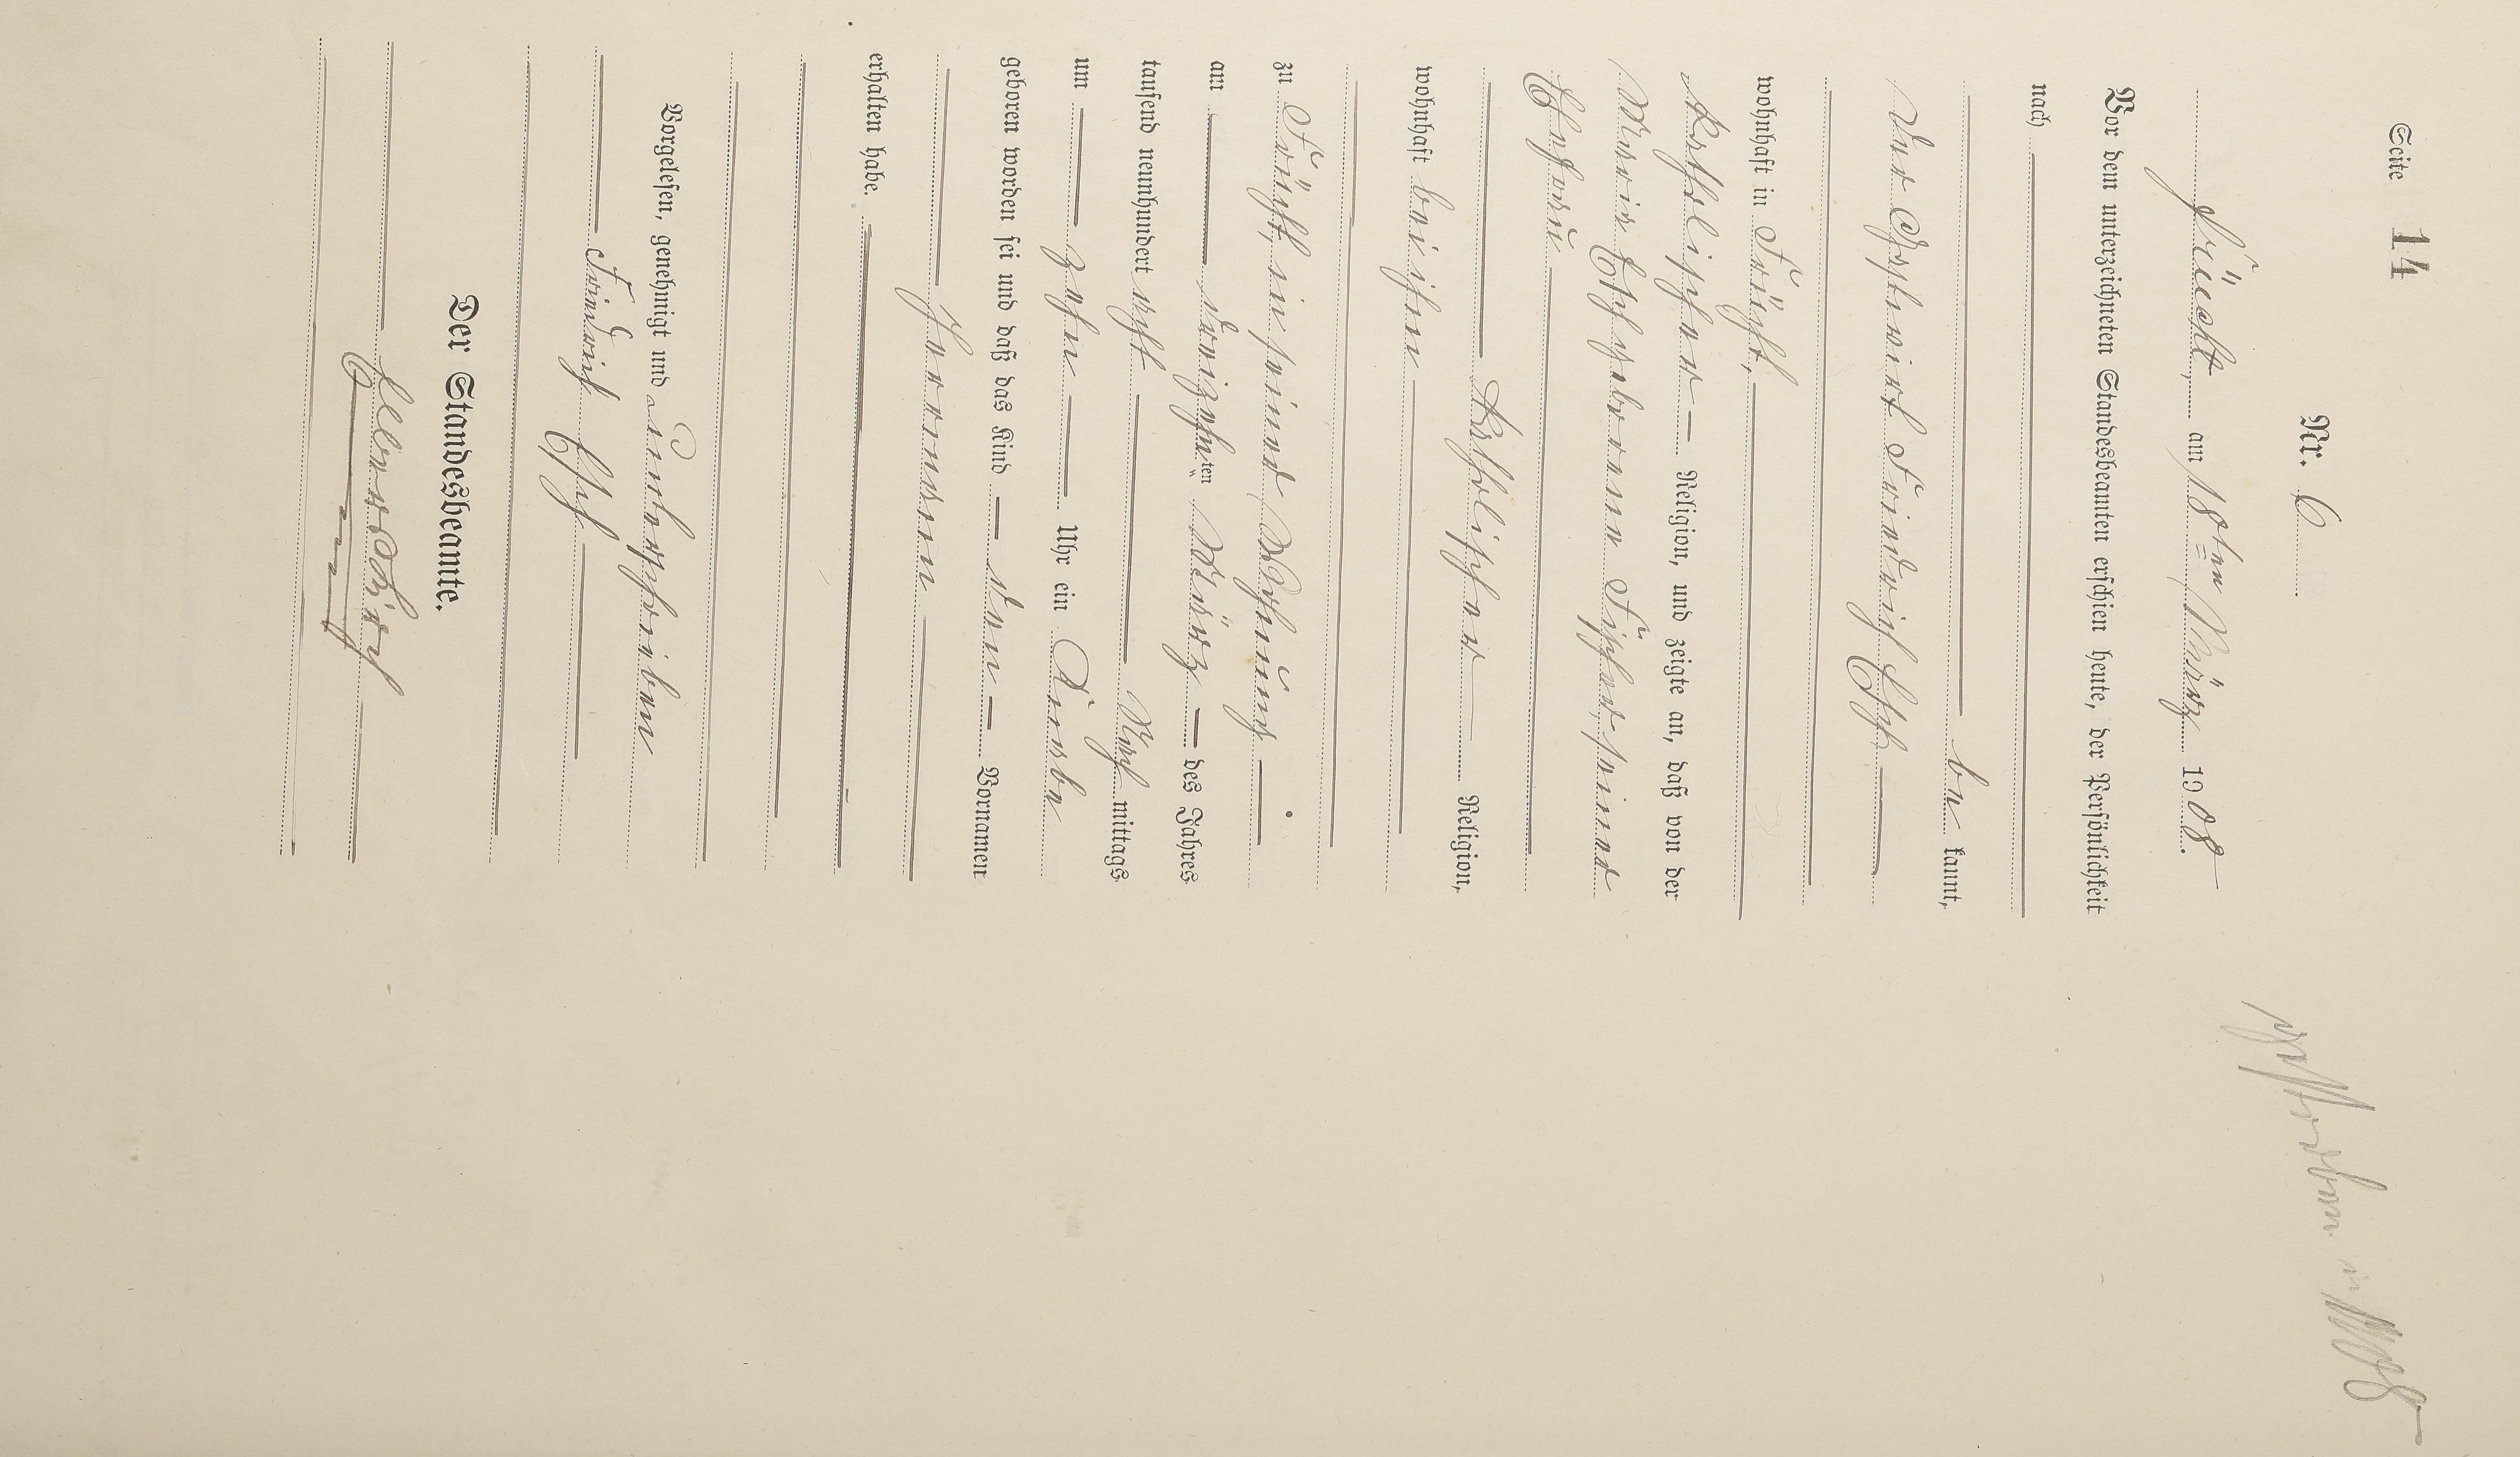 Seite 14
Nr. 6
Frücht, am 18ten März 1908.
Vor dem unterzeichneten Standesbeamten erschien heute, der Persönlichkeit
nach
be kannt,
der Gastwirt Friedrich
wohnhaft in Frücht,
katholischer Religion, und zeigte an, daß von der
Maria geborenen Fischer, seiner
Ehefrau
katholischer Religion,
wohnhaft bei ihm
zu Frücht, in seiner Wohnung
am dreizehnten März des Jahres
tausend neunhundert acht Nach mittags
um zehn Uhr ein Knabe
geboren worden sei und daß das Kind den Vornamen
Hermann
erhalten habe.
Vorgelesen, genehmigt und unterschrieben
Friedrich
Der Standesbeamte.